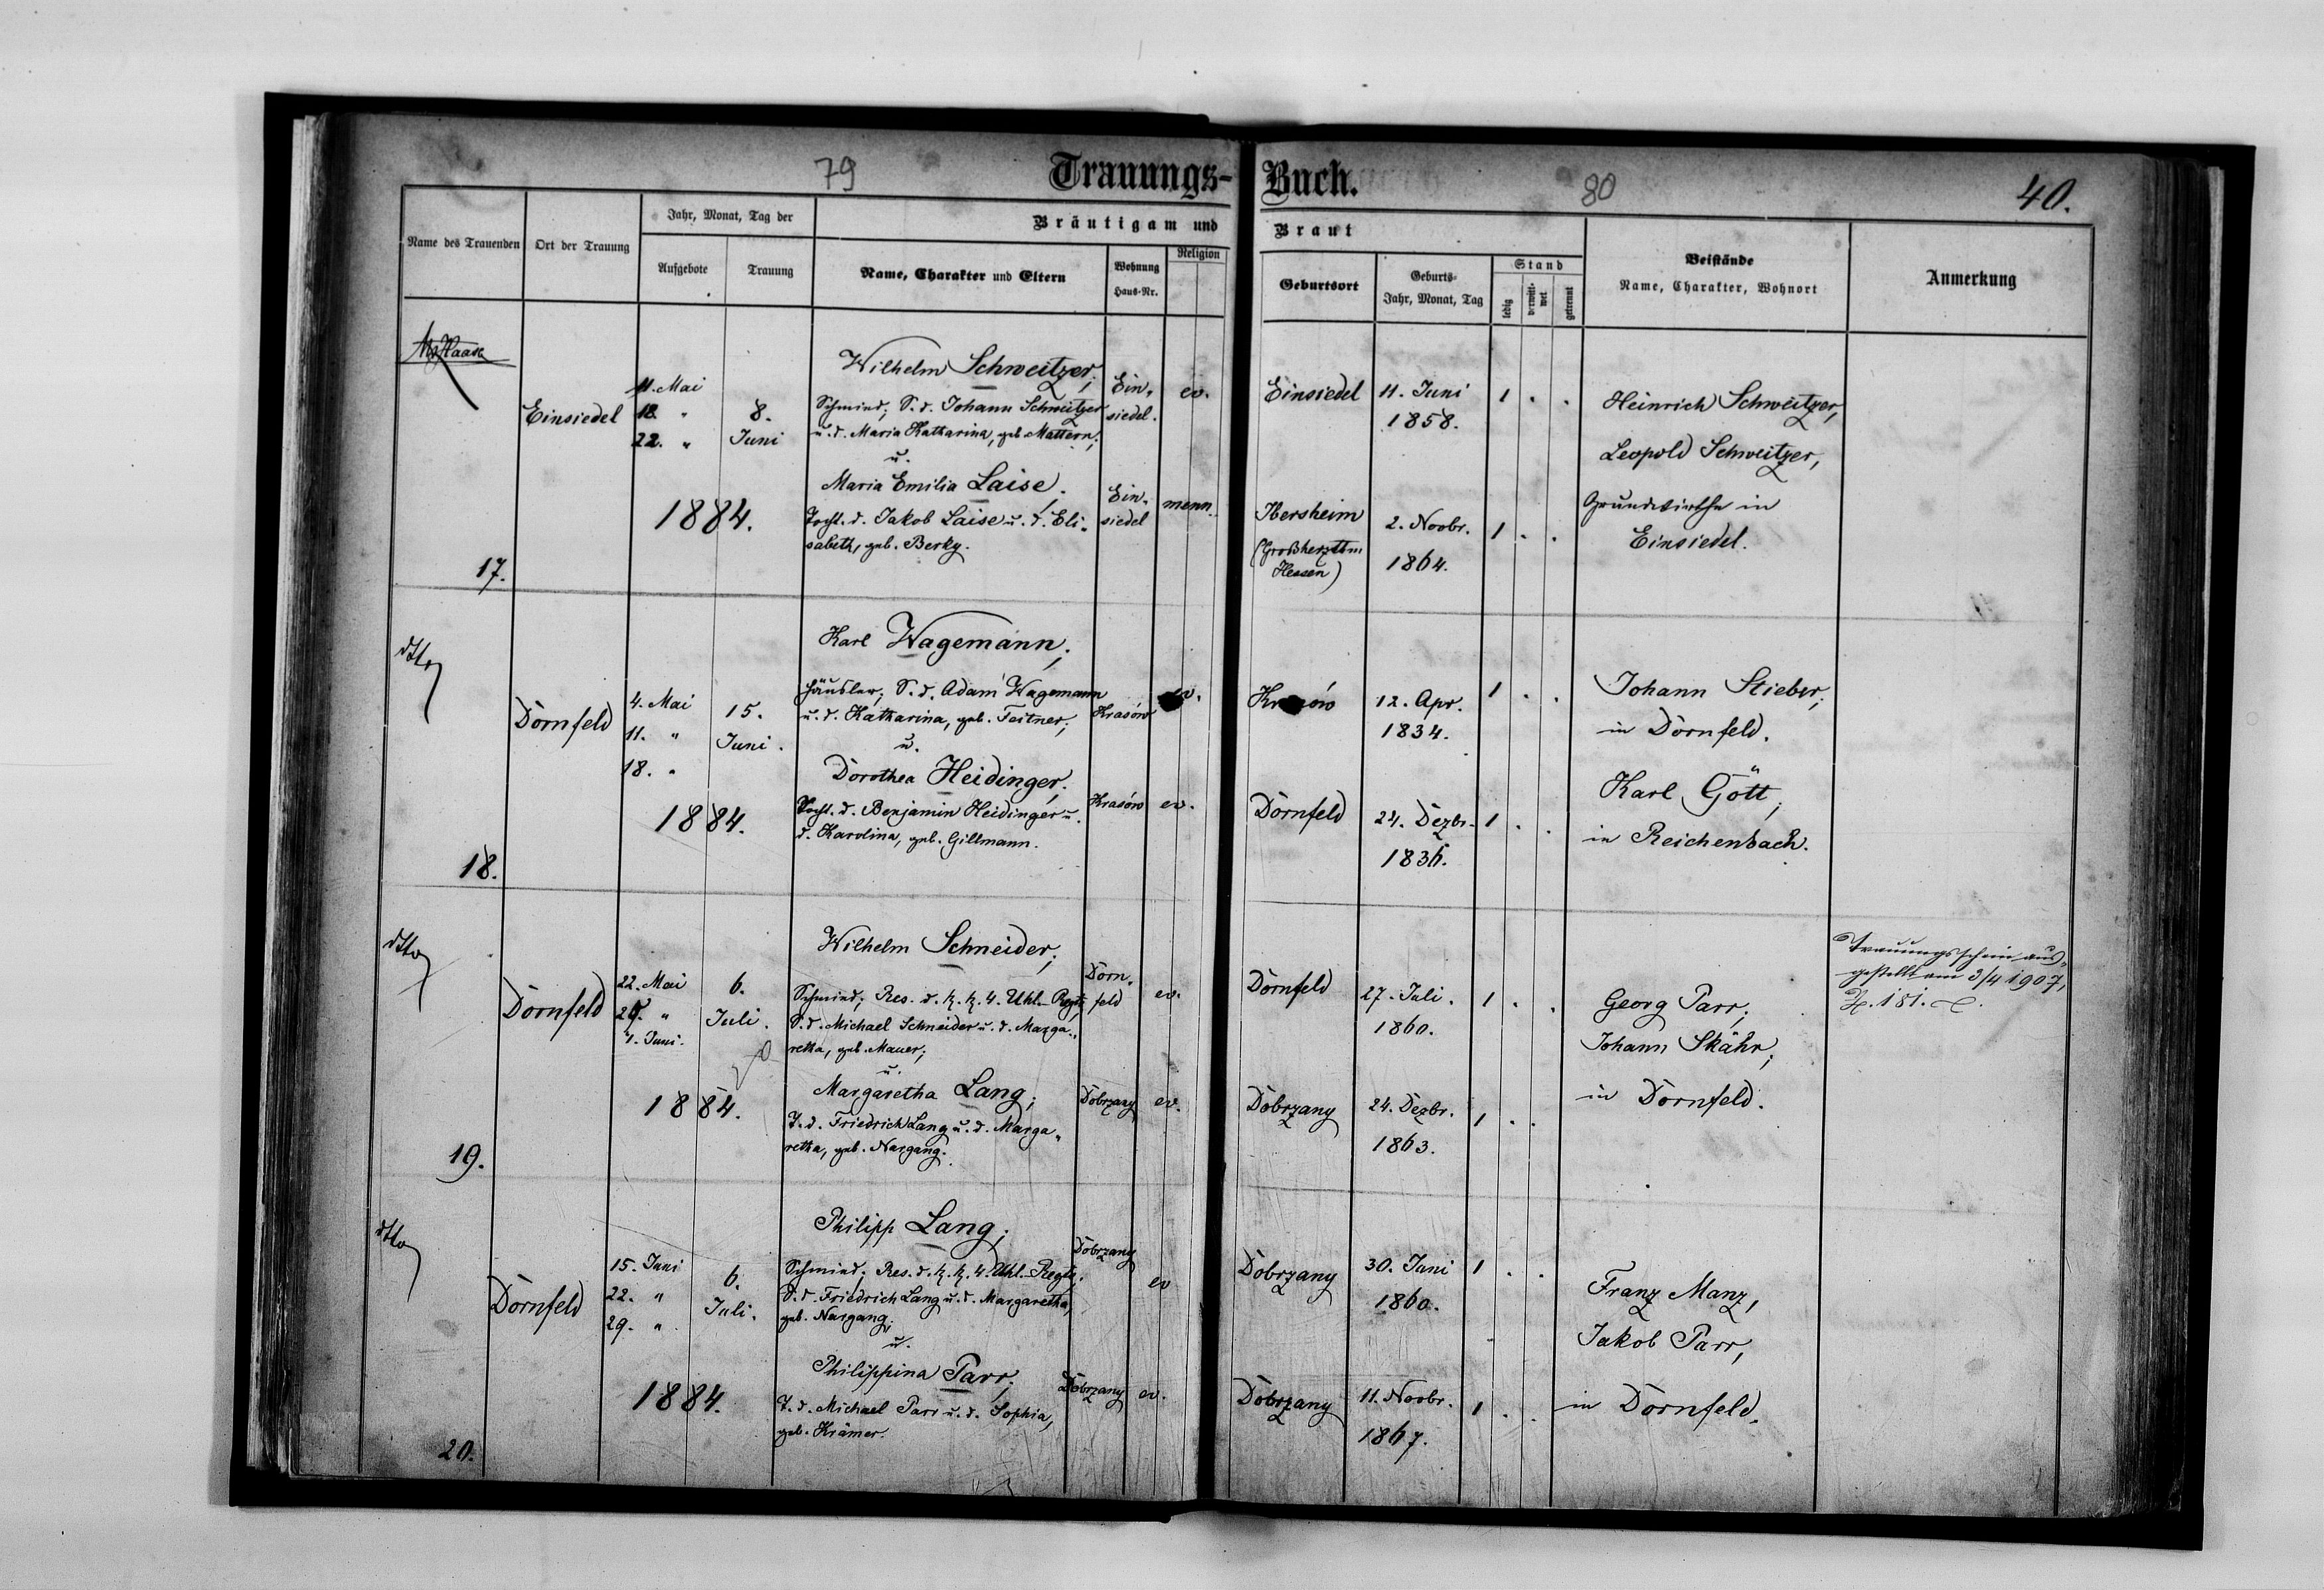 79
Trauungs-Buch.
80
40.
Name des Trauenden
Ort der Trauung
Jahr, Monat, Tag der
Aufgebote
Trauung
Bräutigam und Braut
Name, Charakter und Eltern
Wohnung
Haus-Nr.
Religion
Geburtsort
Geburts-
Jahr, Monat, Tag
Stand
ledig
verwitt-
wet
getrennt
Beistände
Name, Charakter, Wohnort
Anmerkung
Haase
17.
Einsiedel
11. Mai
18. "
22. "
8.
Juni
1884.
Wilhelm Schweitzer;
Schmied; S. d. Johann Schweitzer
u. d. Maria Katharina, geb. Mattern;
u.
Maria Emilia Laise;
Tocht. d. Jakob Laise u. d. Eli-
sabeth, geb. Berky.
Ein-
siedel.
ev.
Ein-
siedel
menn.
Einsiedel
11. Juni
1858.
1 . .
Ibersheim
(Großherzthm
Hessen)
2. Novbr.
1864.
1 . .
Heinrich Schweitzer,
Leopold Schweitzer,
Grundwirthe in
Einsiedel.
dtto
18.
Dornfeld
4. Mai
11. "
18. "
15.
Juni.
1884.
Karl Wagemann;
Häusler; S. d. Adam Wagemann
u. d. Katharina, geb. Feitner;
u.
Dorothea Heidinger;
Tocht. d. Benjamin Heidinger u.
d. Karolina, geb. Gillmann.
Krasów
ev.
Krasów
ev.
12. Apr.
1834.
1 . .
Dornfeld
24. Dezbr.
1836.
1 . .
Johann Stieber;
in Dornfeld.
Karl Gött;
in Reichenbach.
dtto
19.
Dornfeld
22. Mai
"
1. Juni.
6.
Juli.
1884.
Wilhelm Schneider;
Schmied; Res. d. k. k. 4. Uhl.-Regts;
S. d. Michael Schneider u. d. Marga-
retha, geb. Mauer;
u.
Margaretha Lang;
T. d. Friedrich Lang u. d. Marga-
retha, geb. Nargang.
Dorn-
feld
ev.
Dobrzany
ev.
Dornfeld
27. Juli.
1860.
1 . .
Dobrzany
24. Dezbr.
1863.
1 . .
Georg Parr;
Johann Skähr;
in Dornfeld.
Trauungsschein aus-
gestellt am 3/4 1907,
Z. 181.
dtto
20.
Dornfeld
15. Juni
22. "
29. "
6.
Juli.
1884.
Philipp Lang;
Schmied; Res. d. k. k. 4. Uhl.-Regts;
S. d. Friedrich Lang u. d. Margaretha,
geb. Nargang;
u.
Philippina Parr;
T. d. Michael Parr u. d. Sophia,
geb. Krämer.
Dobrzany
ev
Dobrzany
ev.
Dobrzany
30. Juni
1860.
1 . .
Dobrzany
11. Novbr.
1867.
1 . .
Franz Manz,
Jakob Parr,
in Dornfeld.